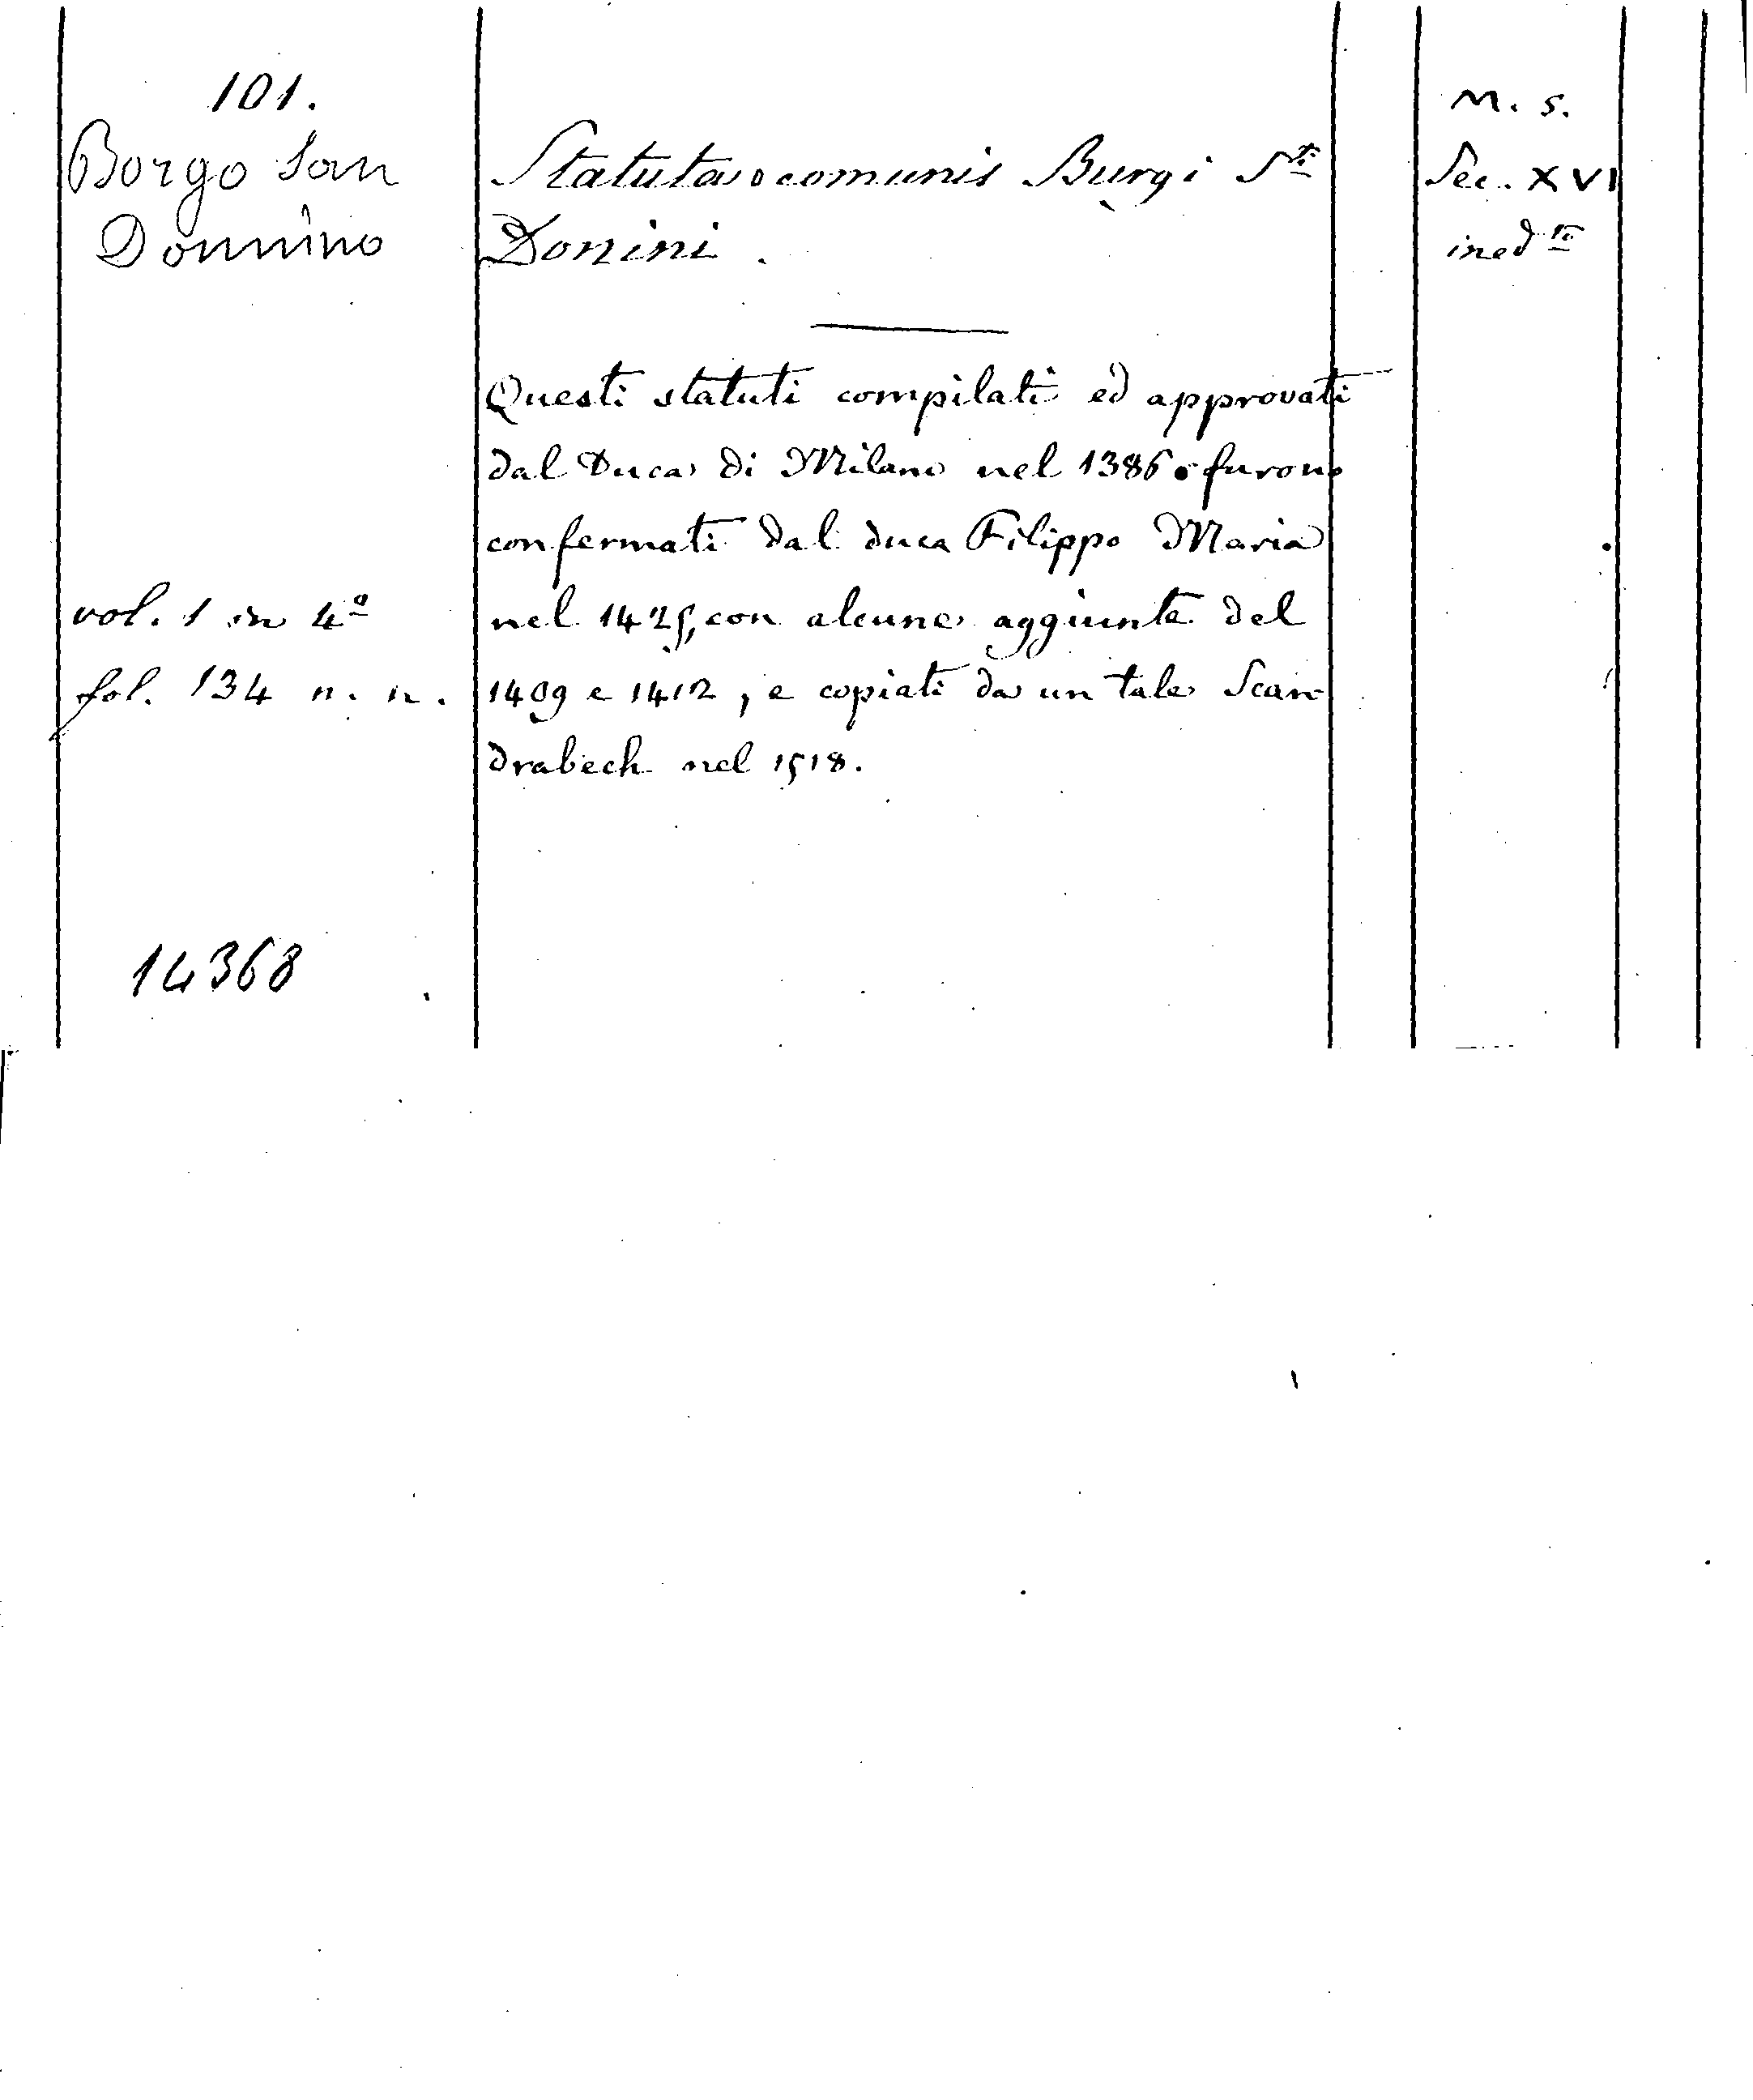 101.
Borgo San
Donnino
vol. 1 in 4º
fol. 134 n. n.
14368
Statuta comunis Burgi Sti
Donini.
Questi statuti compilati ed approvati
dal Duca di Milano nel 1386 furono
confermati dal duca Filippo Maria
nel 1425, con alcune aggiunte del
1409 e 1412, e copiati da un tale Scan-
drabech nel 1518.
M. S.
Sec. XVI
ined.ti